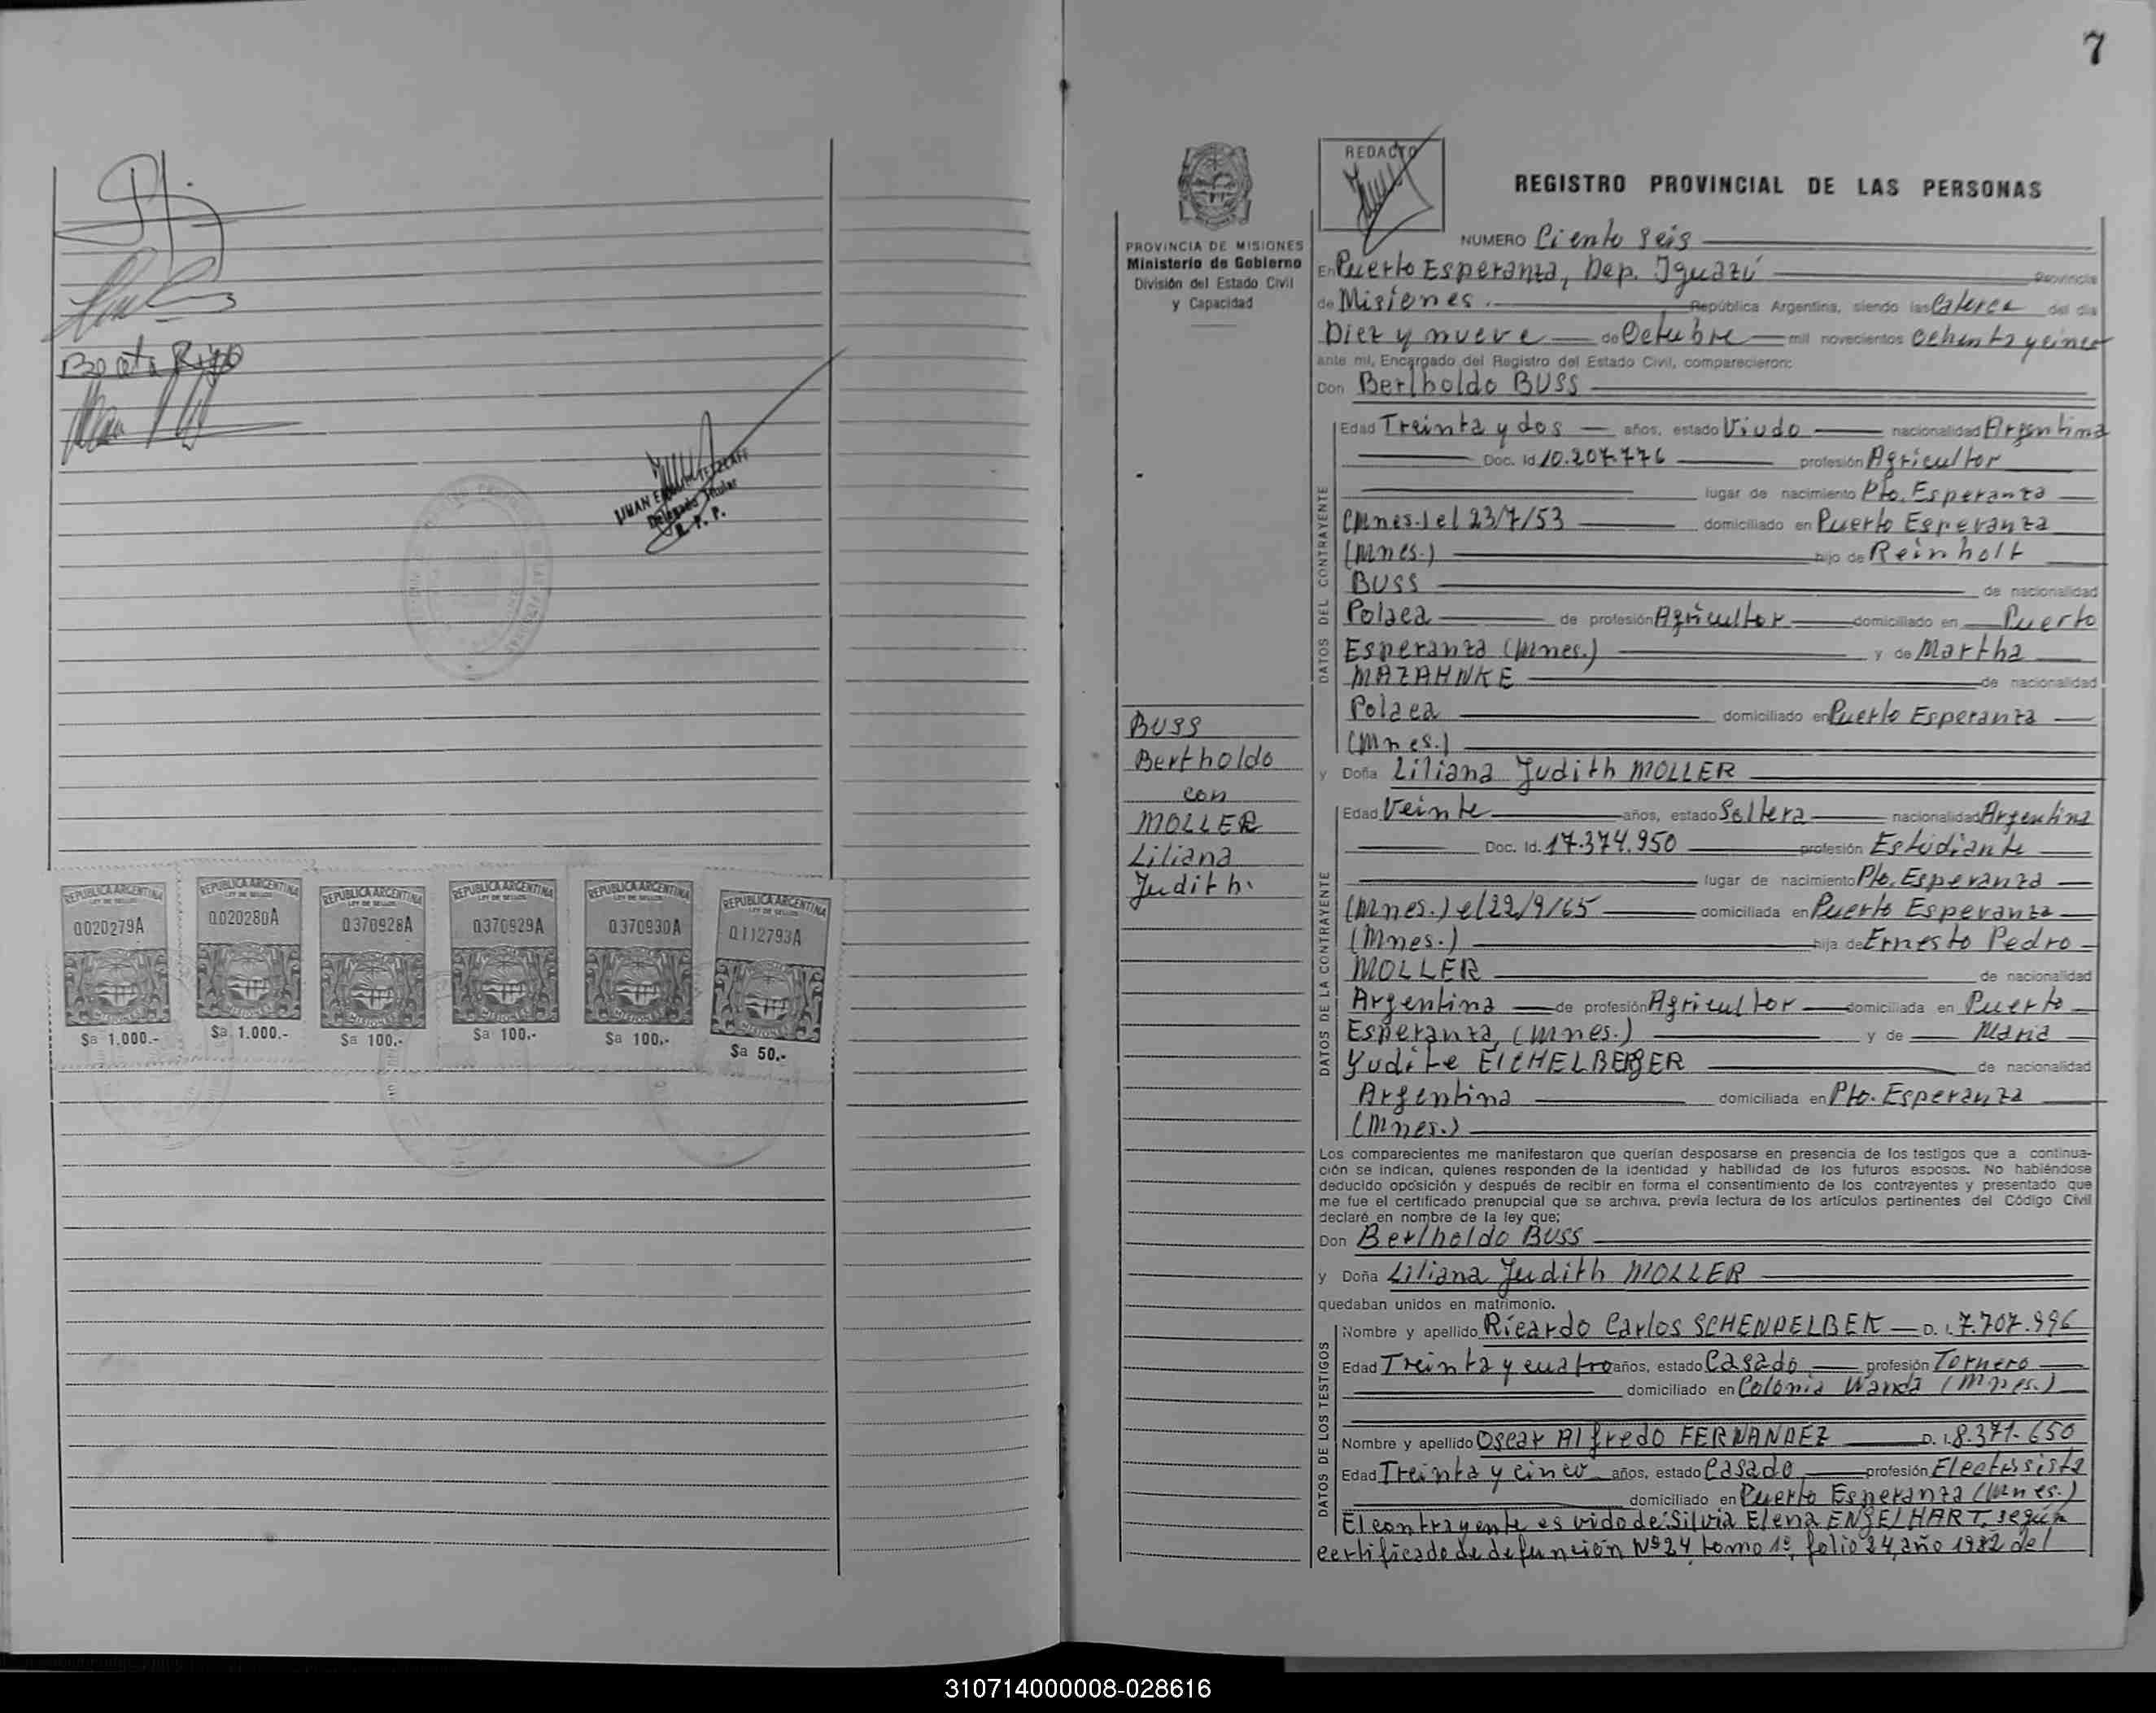 Beata Rigo
Delegado Titular
R. P. P.
REPUBLICA ARGENTINA
LEY DE SELLOS
0020279A
MISIONES
$a 1.000.-
REPUBLICA ARGENTINA
LEY DE SELLOS
0020280A
MISIONES
$a 1.000.-
REPUBLICA ARGENTINA
LEY DE SELLOS
0370928A
MISIONES
$a 100.-
REPUBLICA ARGENTINA
LEY DE SELLOS
0370929A
MISIONES
$a 100.-
REPUBLICA ARGENTINA
LEY DE SELLOS
0370930A
MISIONES
$a 100.-
REPUBLICA ARGENTINA
LEY DE SELLOS
0112793A
MISIONES
$a 50.-
7
PROVINCIA DE MISIONES
Ministerio de Gobierno
División del Estado Civil
y Capacidad
BUSS
Bertholdo
con
MOLLER
Liliana
Judith.
REDACTO
REGISTRO PROVINCIAL DE LAS PERSONAS
NUMERO Ciento seis
En Puerto Esperanza, Dep. Iguazú Provincia
de Misiones. República Argentina, siendo las Catorce del día
Diez y nueve de Octubre mil novecientos ochenta y cinco
ante mí, Encargado del Registro del Estado Civil, comparecieron:
Don Bertholdo BUSS
DATOS DEL CONTRAYENTE
Edad Treinta y dos años, estado Viudo nacionalidad Argentina
Doc. Id. 10.207.776 profesión Agricultor
lugar de nacimiento Pto. Esperanza
(Mnes.) el 23/7/53 domiciliado en Puerto Esperanza
(Mnes.) hijo de Reinholt
BUSS de nacionalidad
Polaca de profesión Agricultor domiciliado en Puerto
Esperanza (Mnes.) y de Martha
MAZAHNKE de nacionalidad
Polaca domiciliado en Puerto Esperanza
(Mnes.)
y Doña Liliana Judith MOLLER
DATOS DE LA CONTRAYENTE
Edad Veinte años, estado Soltera nacionalidad Argentina
Doc. Id. 17.374.950 profesión Estudiante
lugar de nacimiento Pto. Esperanza
(Mnes.) el 22/9/65 domiciliada en Puerto Esperanza
(Mnes.) hija de Ernesto Pedro
MOLLER de nacionalidad
Argentina de profesión Agricultor domiciliada en Puerto
Esperanza, (Mnes.) y de Maria
Yudite EICHELBERGER de nacionalidad
Argentina domiciliada en Pto. Esperanza
(Mnes.)
Los comparecientes me manifestaron que querían desposarse en presencia de los testigos que a continua-
ción se indican, quienes responden de la identidad y habilidad de los futuros esposos. No habiéndose
deducido oposición y después de recibir en forma el consentimiento de los contrayentes y presentado que
me fue el certificado prenupcial que se archiva, previa lectura de los artículos pertinentes del Código Civil
declaré en nombre de la ley que;
Don Bertholdo BUSS
y Doña Liliana Judith MOLLER
quedaban unidos en matrimonio.
DATOS DE LOS TESTIGOS
Nombre y apellido Ricardo Carlos SCHENDELBEK D. I. 7.707.996
Edad Treinta y cuatro años, estado Casado profesión Tornero
domiciliado en Colonia Wanda (Mnes.)
Nombre y apellido Oscar Alfredo FERNANDEZ D. I. 8.371.650
Edad Treinta y cinco años, estado Casado profesión Electrisista
domiciliado en Puerto Esperanza (Mnes.)
El contrayente es vido de Silvia Elena ENGELHART, según
certificado de defunción Nº 24 tomo 1º, folio 24, año 1982 del
310714000008-028616